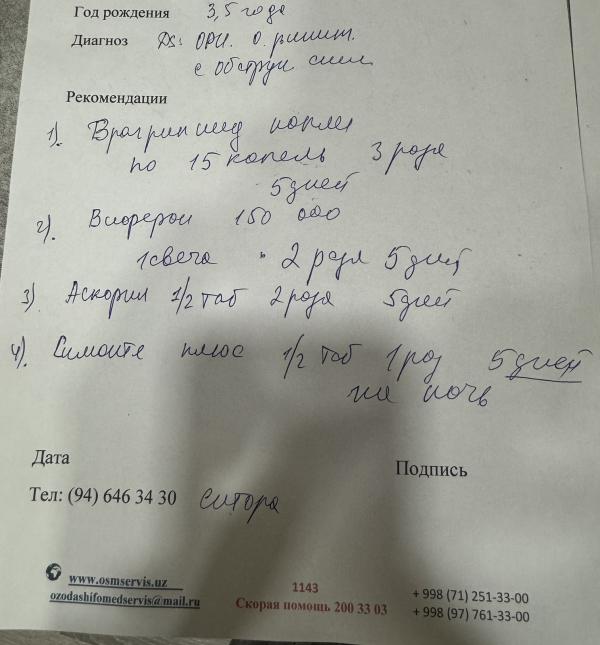 Год рождения 3,5 года
Диагноз Ds: ОРИ. О. ринит.
с обструк синд
Рекомендации
1). Врагриппиид капли
по 15 капель 3 раза
5 дней
2). Виферон 150 000
1 свеча 2 раза 5 дней
3) Аскорил 1/2 таб 2 раза 5 дней
4). Симонте плюс 1/2 таб 1 раз 5 дней
на ночь
Дата
Подпись
Тел: (94) 646 34 30 Ситора
www.osmservis.uz
ozodashifomedservis@mail.ru
1143
Скорая помощь 200 33 03
+ 998 (71) 251-33-00
+ 998 (97) 761-33-00